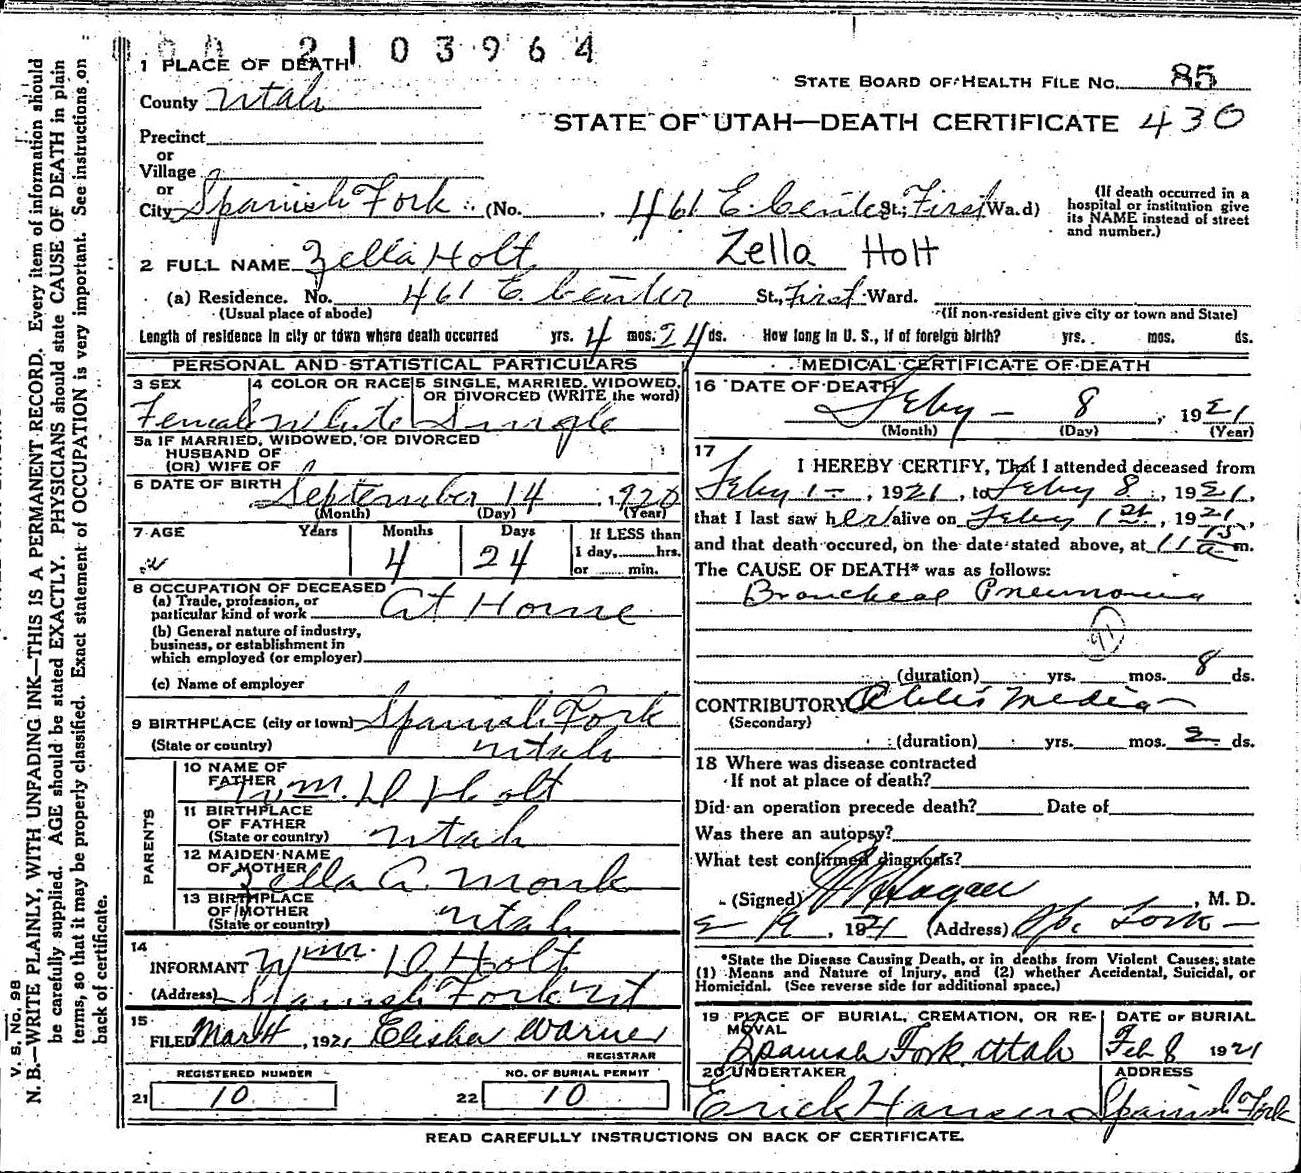 2103964
1 PLACE OF DEATH
STATE BOARD OF HEALTH FILE NO. 85
County Utah
STATE OF UTAH—DEATH CERTIFICATE 430
Precinct
or
Village
or
City Spanish Fork (No. 461 E. Center St.; First Ward)
(If death occurred in a hospital or institution give its NAME instead of street and number.)
2 FULL NAME Zella Holt Zella Holt
(a) Residence. No. 461 E. Center St., First Ward.
(Usual place of abode) (If non-resident give city or town and State)
Length of residence in city or town where death occurred yrs. 4 mos. 24 ds. How long in U. S., if of foreign birth? yrs. mos. ds.
PERSONAL AND STATISTICAL PARTICULARS
3 SEX 4 COLOR OR RACE 5 SINGLE, MARRIED, WIDOWED, OR DIVORCED (WRITE the word)
Female White Single
5a IF MARRIED, WIDOWED, OR DIVORCED
HUSBAND OF
(OR) WIFE OF
6 DATE OF BIRTH September 14, 1920
(Month) (Day) (Year)
7 AGE Years Months Days If LESS than
4 24 1 day, hrs.
or min.
8 OCCUPATION OF DECEASED
(a) Trade, profession, or
particular kind of work At Home
(b) General nature of industry,
business, or establishment in
which employed (or employer)
(c) Name of employer
9 BIRTHPLACE (city or town) Spanish Fork
(State or country) Utah
PARENTS
10 NAME OF
FATHER Wm. D Holt
11 BIRTHPLACE
OF FATHER
(State or country) Utah
12 MAIDEN NAME
OF MOTHER Zella A. Monk
13 BIRTHPLACE
OF MOTHER
(State or country) Utah
14
INFORMANT Wm. D Holt
(Address) Spanish Fork Ut
15
FILED Mar 4, 1921 Elisha Warner
REGISTRAR
REGISTERED NUMBER NO. OF BURIAL PERMIT
21 10 22 10
MEDICAL CERTIFICATE OF DEATH
16 DATE OF DEATH Feby - 8, 1921
(Month) (Day) (Year)
17
I HEREBY CERTIFY, That I attended deceased from
Feby 1 -, 1921, to Feby 8, 1921,
that I last saw her alive on Feby 1st, 1921,
and that death occured, on the date stated above, at 11 15 a m.
The CAUSE OF DEATH* was as follows:
Broncheal Pneumonia
91
(duration) yrs. mos. 8 ds.
CONTRIBUTORY Otitis Media
(Secondary)
(duration) yrs. mos. 2 ds.
18 Where was disease contracted
If not at place of death?
Did an operation precede death? Date of
Was there an autopsy?
What test confirmed diagnosis?
(Signed) Hagan, M. D.
2 19, 1921 (Address) Sp. Fork
*State the Disease Causing Death, or in deaths from Violent Causes; state
(1) Means and Nature of Injury, and (2) whether Accidental, Suicidal, or
Homicidal. (See reverse side for additional space.)
19 PLACE OF BURIAL, CREMATION, OR REMOVAL DATE OF BURIAL
Spanish Fork Utah Feb 8 1921
20 UNDERTAKER ADDRESS
Erick Hansen Spanish Fork
READ CAREFULLY INSTRUCTIONS ON BACK OF CERTIFICATE.
V. S. NO. 98
N. B.—WRITE PLAINLY, WITH UNFADING INK—THIS IS A PERMANENT RECORD. Every item of information should
be carefully supplied. AGE should be stated EXACTLY. PHYSICIANS should state CAUSE OF DEATH in plain
terms, so that it may be properly classified. Exact statement of OCCUPATION is very important. See instructions on
back of certificate.